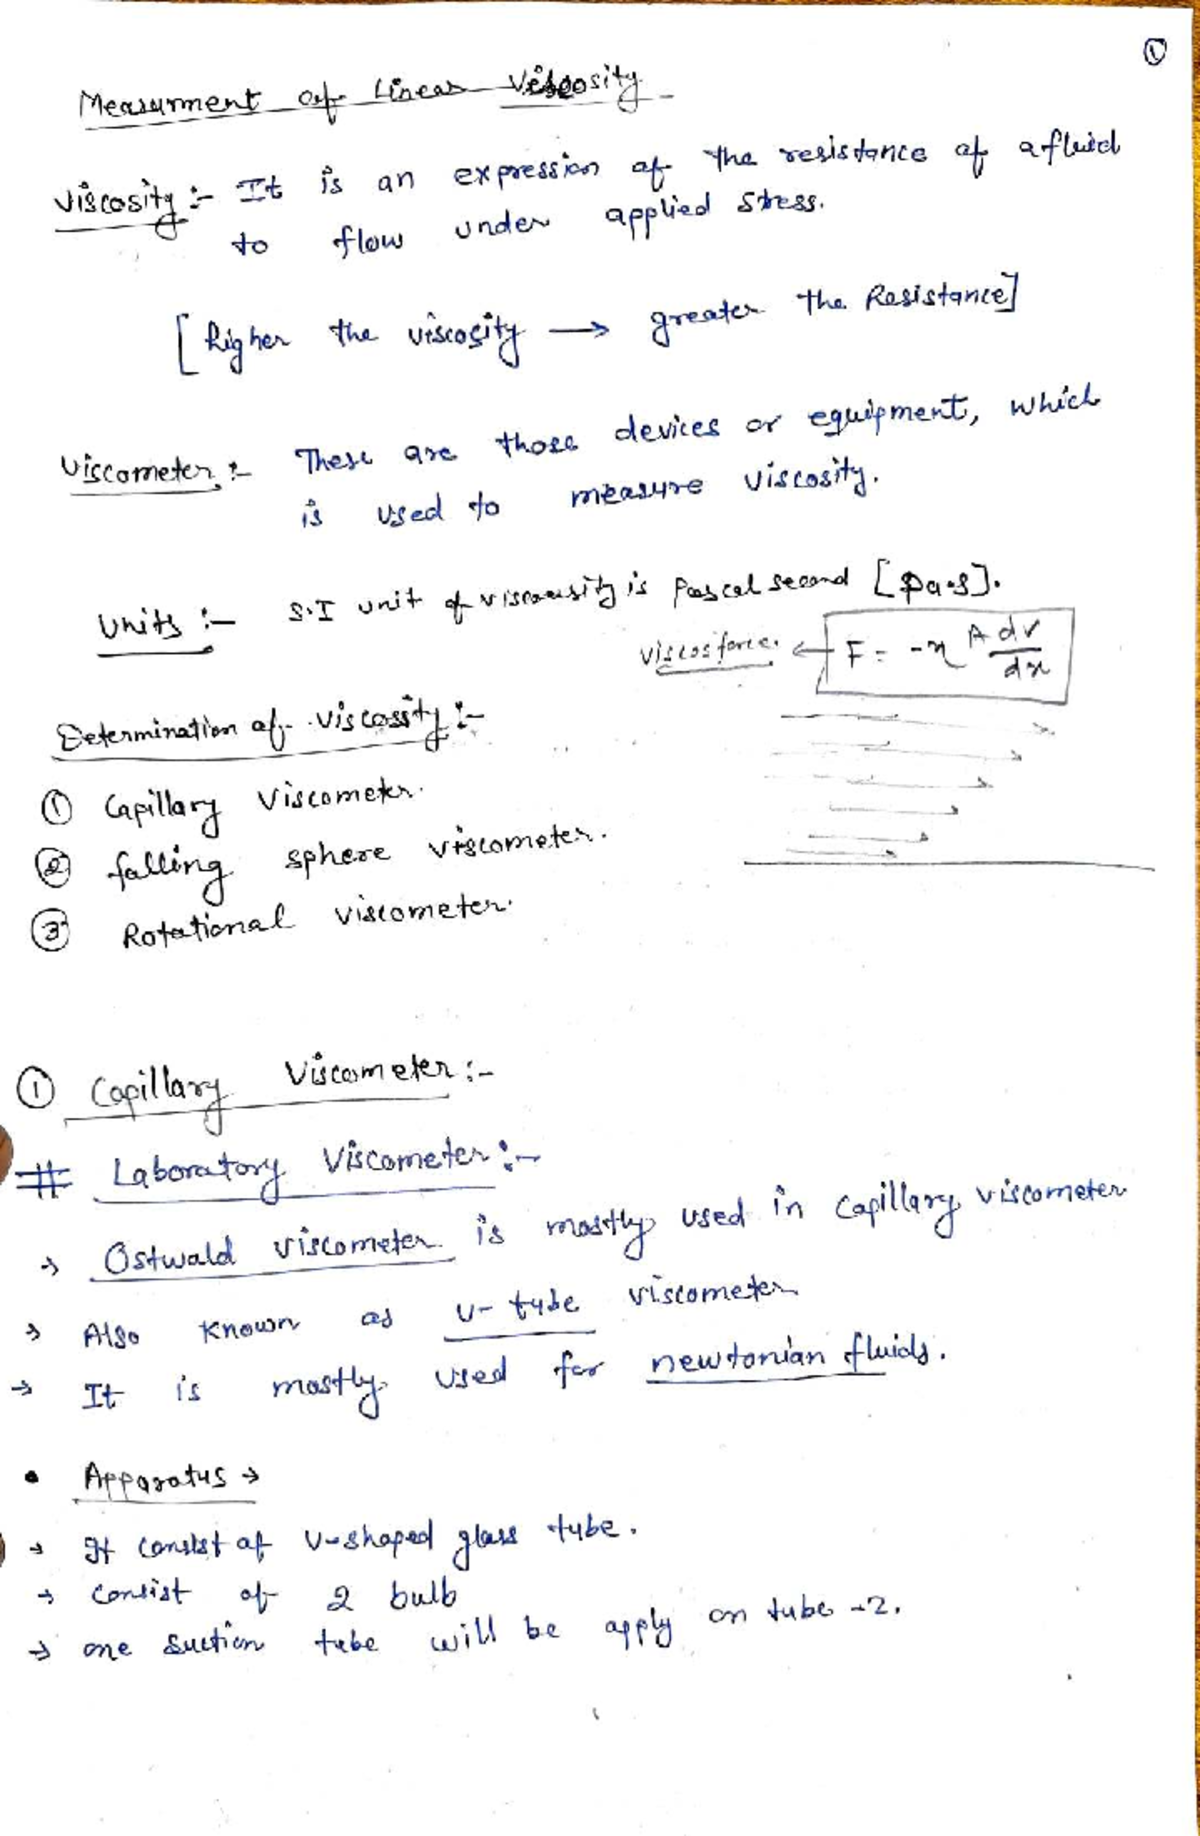 ①
Measurment of Linear Viscosity
Viscosity :- It is an expression of the resistance of a fluid
to flow under applied stress.
[higher the viscosity → greater the Resistance]
Viscometer :- These are those devices or equipment, which
is used to measure viscosity.
Units :- S.I unit of viscousity is Pascal second [Pa.s].
Viscos force. ← F = -η A dv/dx
Determination of viscosity :-
① Capillary Viscometer.
② falling sphere viscometer.
③ Rotational viscometer.
① Capillary Viscometer :-
# Laboratory Viscometer :-
→ Ostwald viscometer is mostly used in capillary viscometer
→ Also known as U-tube viscometer
→ It is mostly used for newtonian fluids.
• Apparatus →
→ It consist of U-shaped glass tube.
→ consist of 2 bulb
→ one suction tube will be apply on tube -2.